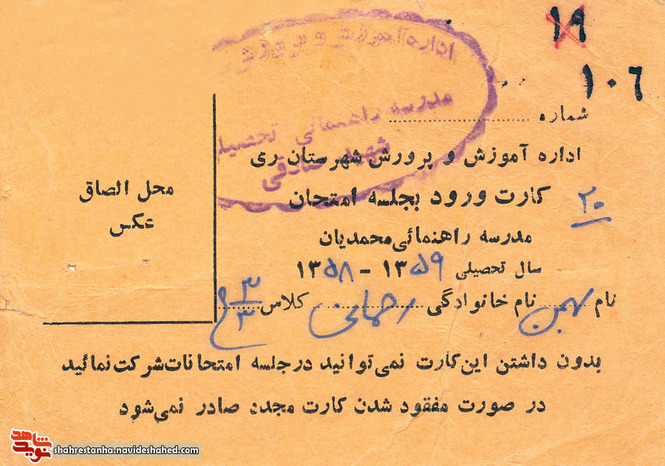 ۱۹
۱۰۶
شماره
اداره آموزش و پرورش
مدرسه راهنمائی تحصیلی
شهید صادقی
اداره آموزش و پرورش شهرستان ری
کارت ورود بجلسه امتحان
۲۰
مدرسه راهنمائی محمدیان
سال تحصیلی ۱۳۵۹ - ۱۳۵۸
نام بهمن نام خانوادگی رحمانی کلاس ۳/۳
محل الصاق
عکس
بدون داشتن این کارت نمی‌توانید در جلسه امتحانات شرکت نمائید
در صورت مفقود شدن کارت مجدد صادر نمی‌شود
نوید شاهد
shahrestanha.navideshahed.com